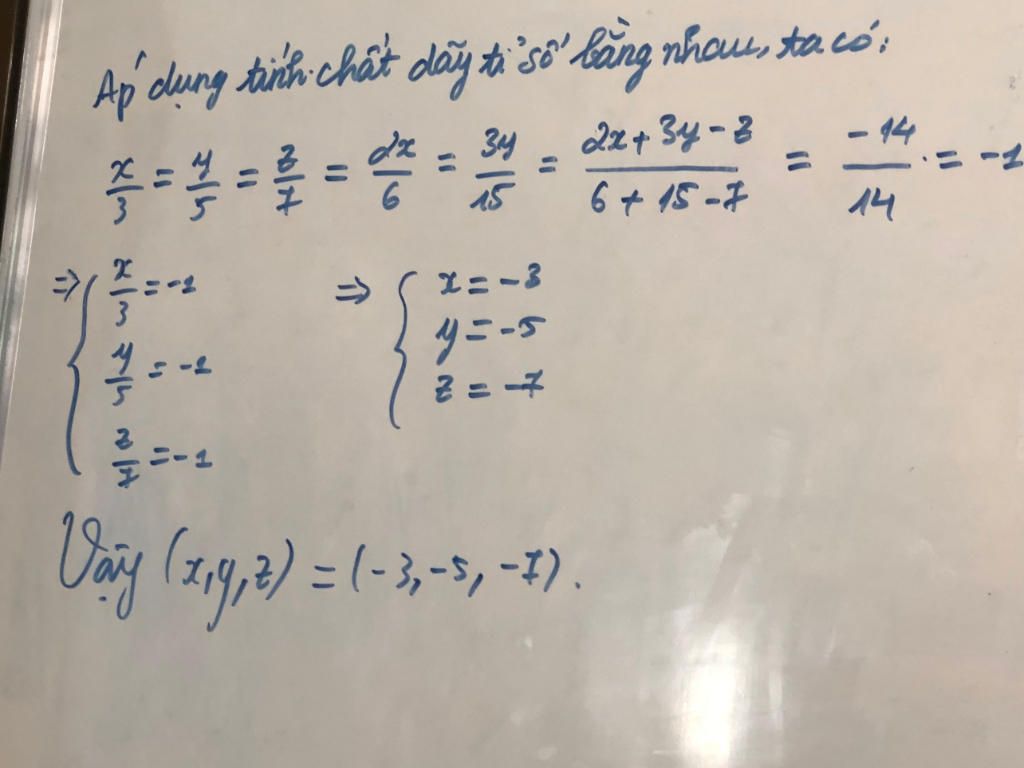 Áp dụng tính chất dãy tỉ số bằng nhau, ta có:
x/3 = y/5 = z/7 = 2x/6 = 3y/15 = (2x + 3y - z)/(6 + 15 - 7) = -14/14 = -1
=> { x/3 = -1 => { x = -3
y/5 = -1 y = -5
z/7 = -1 z = -7
Vậy (x, y, z) = (-3, -5, -7).